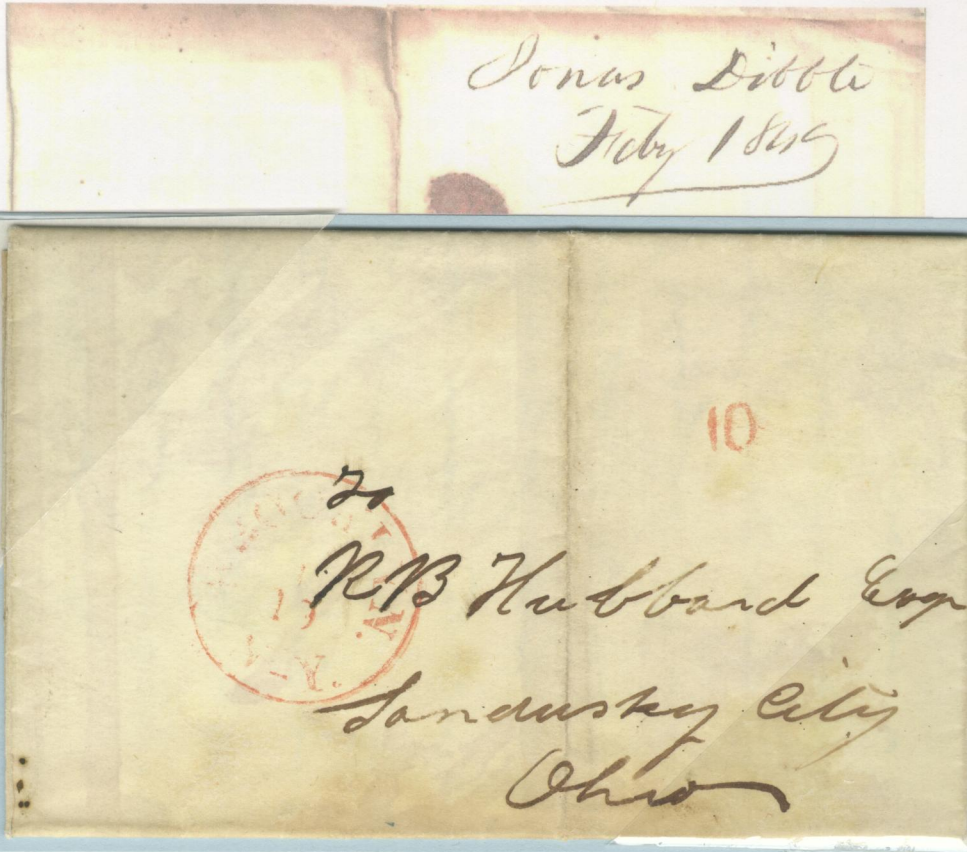 Jonas Dibble
Feby 1849
10
To
R B Hubbard Esqr
Sandusky City
Ohio